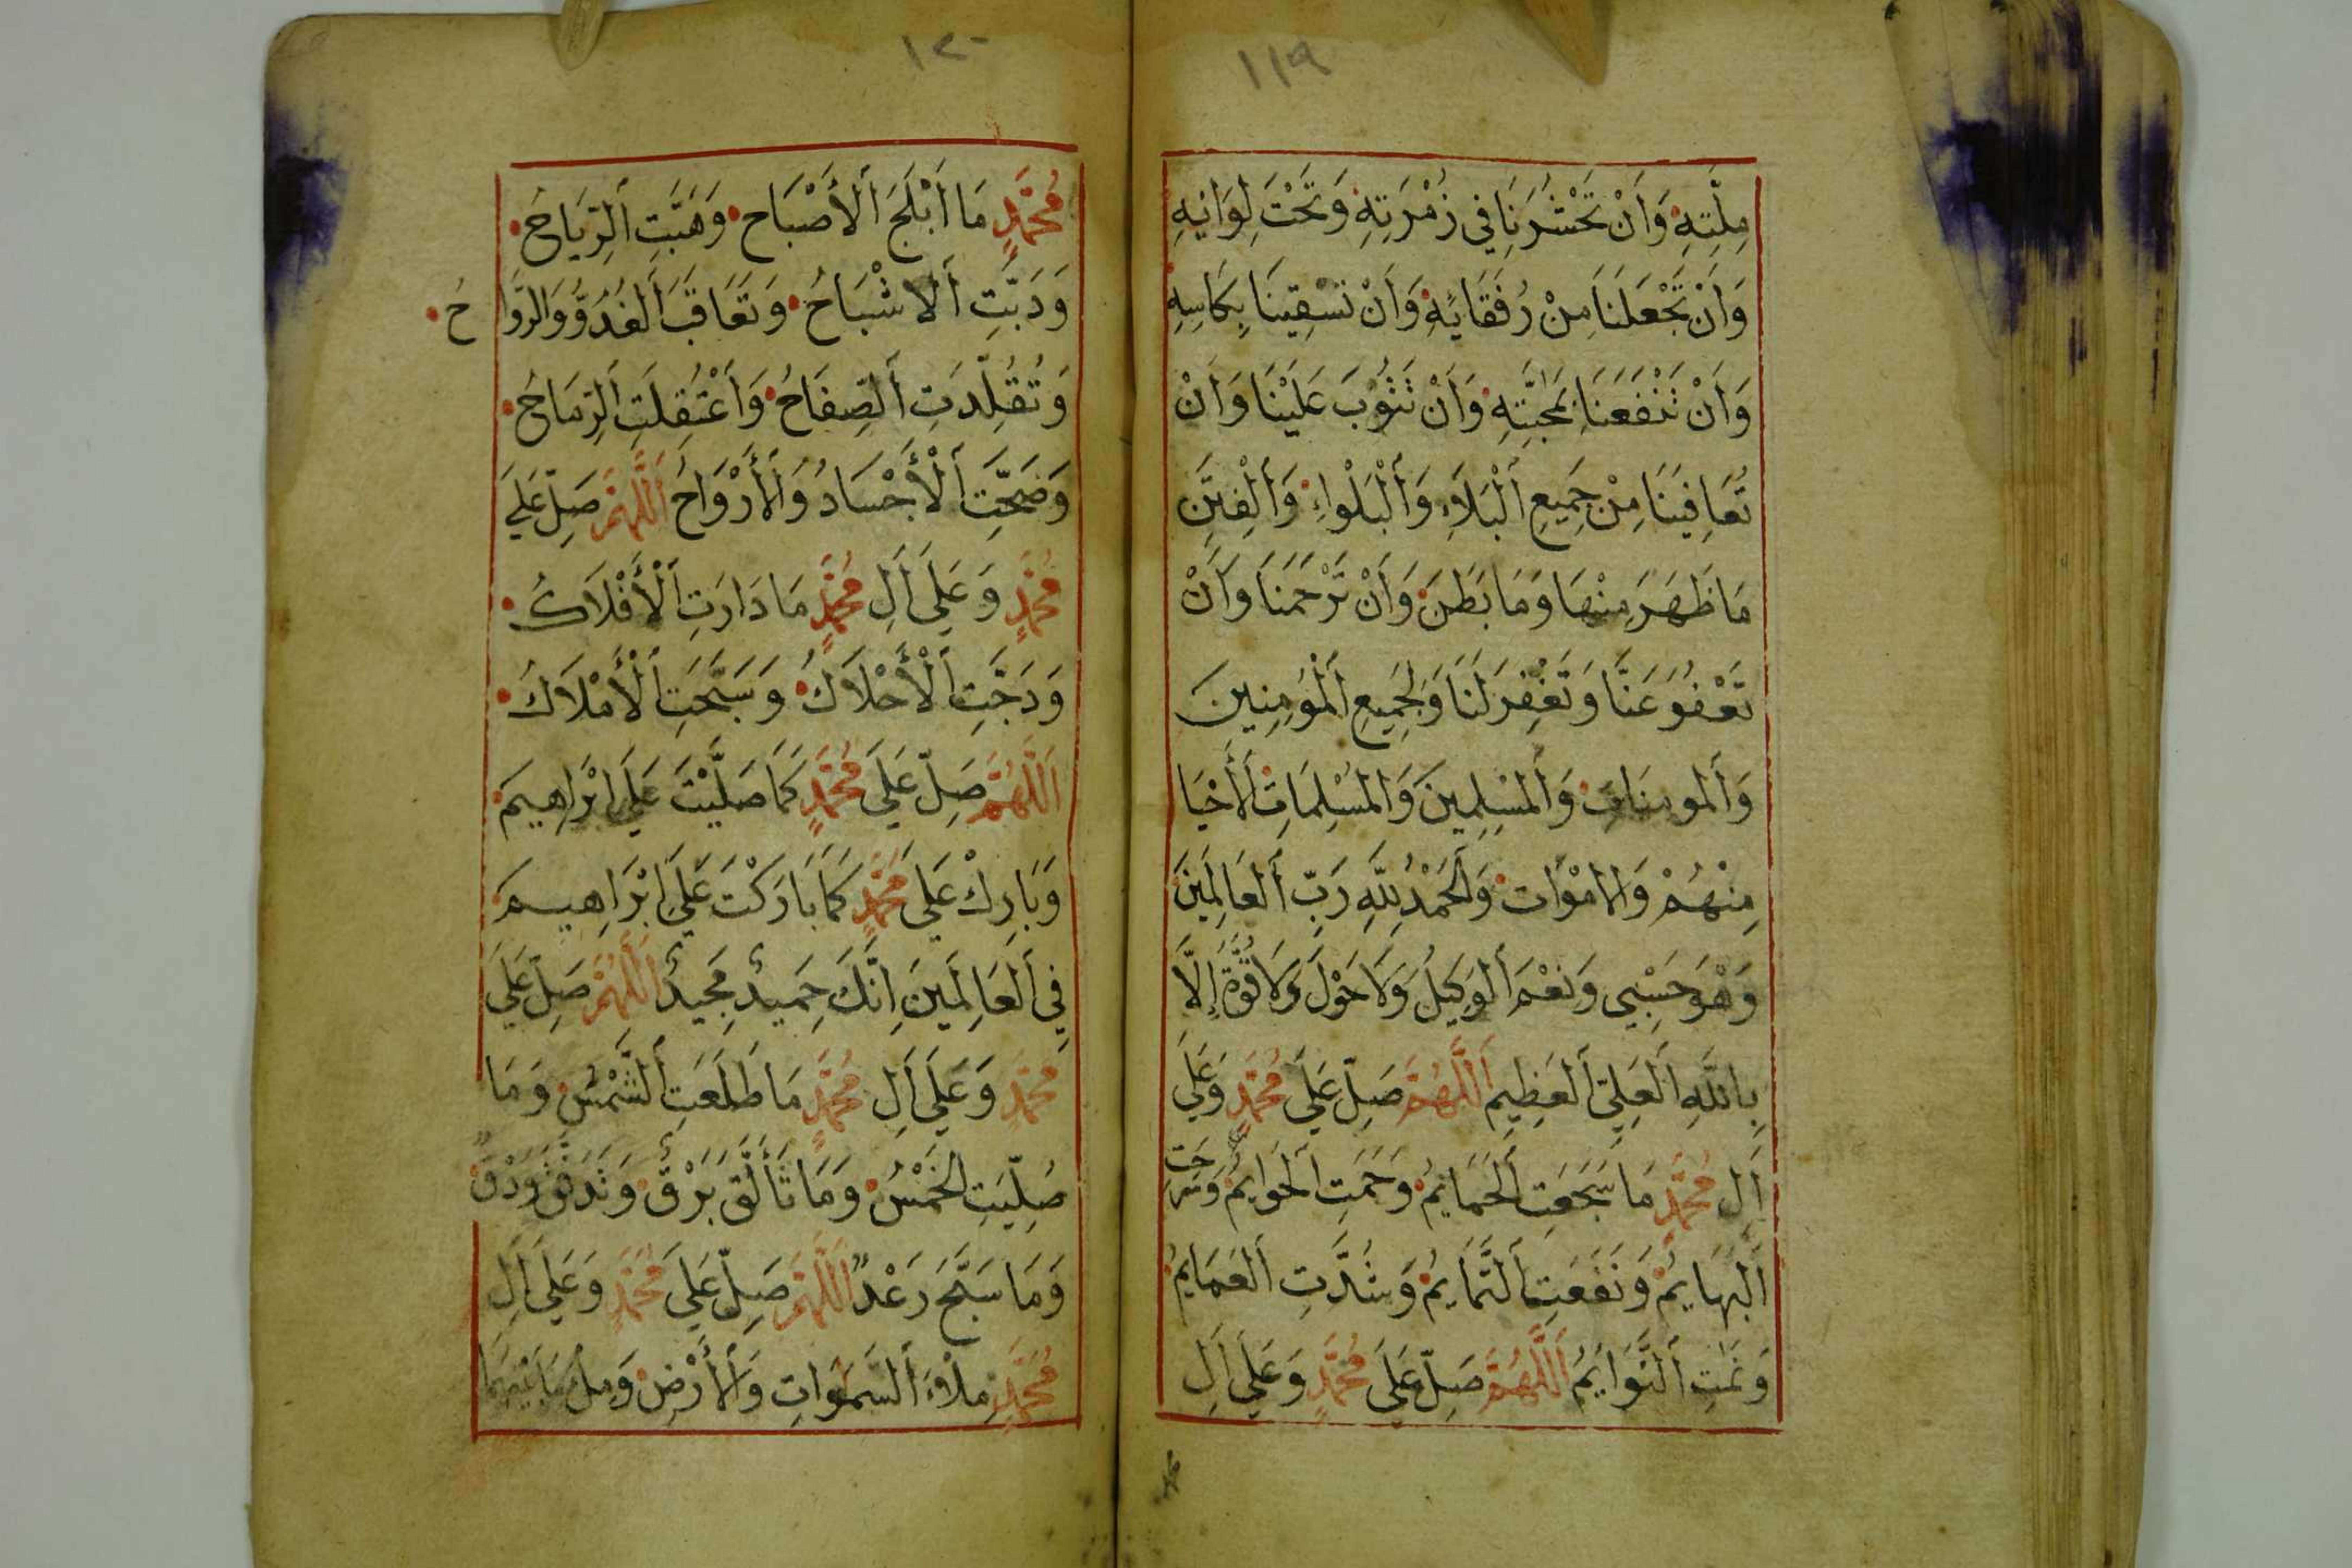 ١١٩
مِلَّتِهِ وَأَنْ تَحْشُرَنَا فِي زُمْرَتِهِ وَتَحْتَ لِوَائِهِ
وَأَنْ تَجْعَلَنَا مِنْ رُفَقَائِهِ وَأَنْ تَسْقِيَنَا بِكَاسِهِ
وَأَنْ تَنْفَعَنَا بِمَحَبَّتِهِ وَأَنْ تَتُوبَ عَلَيْنَا وَأَنْ
تُعَافِيَنَا مِنْ جَمِيعِ اَلْبَلَاءِ وَاَلْبَلْوَاءِ وَاَلْفِتَنِ
مَا ظَهَرَ مِنْهَا وَمَا بَطَنَ وَأَنْ تَرْحَمَنَا وَأَنْ
تَعْفُوَ عَنَّا وَتَغْفِرَ لَنَا وَلِجَمِيعِ اَلْمُؤمِنِينَ
وَاَلمومِنَاتِ وَاَلمُسْلِمِينَ وَالمُسْلِمَاتِ اَلأَحْيَا
مِنْهُمْ وَالامْوَاتِ وَالحَمْدُ لِلَّهِ رَبِّ اَلعَالَمِينَ
وَهْوَ حَسْبِي وَنِعْمَ اَلوَكِيلُ وَلَا حَوْلَ وَلَا قُوَّةَ إِلَّا
بِاللَّهِ اَلعَلِيِّ اَلعَظِيمِ اَللَّهُمَّ صَلِّ عَلَى مُحَمَّدٍ وَعَلَى
اَلِ مُحَمَّدٍ مَا سَجَعَتِ اَلحَمَايِمُ وَحَمَتِ اَلحَوَايِمُ وَسَرَحَتِ
اَلبَهَايِمُ وَنَفَعَتِ اَلتَّمَايِمُ وَشُدَّتِ اَلعَمَايِمُ
وَنَمَتِ اَلنَّوَايِمُ اَللَّهُمَّ صَلِّ عَلَى مُحَمَّدٍ وَعَلَى اَلِ
١٢٠
مُحَمَّدٍ مَا اَبْلَجَ اَلأَصْبَاح وَهَبَّتِ اَلرِّيَاحُ
وَدَبَّتِ اَلاشْبَاحُ وَتَعَاقَبَ اَلغُدُوُّ وَالرَّوَاحُ
وَتُقُلِّدَتِ اَلصِّفَاحُ وَاَعْتُقِلَتِ اَلرِّمَاحُ
وَصَحَّتِ اَلْأَجْسَادُ وَاَلأَرْوَاحُ اَللَّهُمَّ صَلِّ عَلَى
مُحَمَّدٍ وَعَلَى اَلِ مُحَمَّدٍ مَا دَارَتِ اَلْأَفْلَاكُ
وَدَجَّتِ اَلْأَحْلَاكُ وَسَبَّحَتِ اَلْأَمْلَاكُ
اَللَّهُمَّ صَلِّ عَلَى مُحَمَّدٍ كَمَا صَلَّيْتَ عَلَى اِبْرَاهِيمَ
وَبَارِكْ عَلَى مُحَمَّدٍ كَمَا بَارَكْتَ عَلَى اِبْرَاهِيمَ
فِي اَلعَالَمِينَ اِنَّكَ حَمِيدٌ مَجِيدٌ اَللَّهُمَّ صَلِّ عَلَى
مُحَمَّدٍ وَعَلَى اَلِ مُحَمَّدٍ مَا طَلَعَتِ اَلشَّمْسُ وَمَا
صُلِّيَتِ الخَمْسُ وَمَا تَأَلَّقَ بَرْقٌ وَتَدَفَّقَ وَدْقٌ
وَمَا سَبَّحَ رَعْدٌ اَللَّهُمَّ صَلِّ عَلَى مُحَمَّدٍ وَعَلَى اَلِ
مُحَمَّدٍ مِلْأَ اَلسَّمَوَاتِ وَاَلأَرْضِ وَمِلْأَ مَا بَيْنَهُمَا